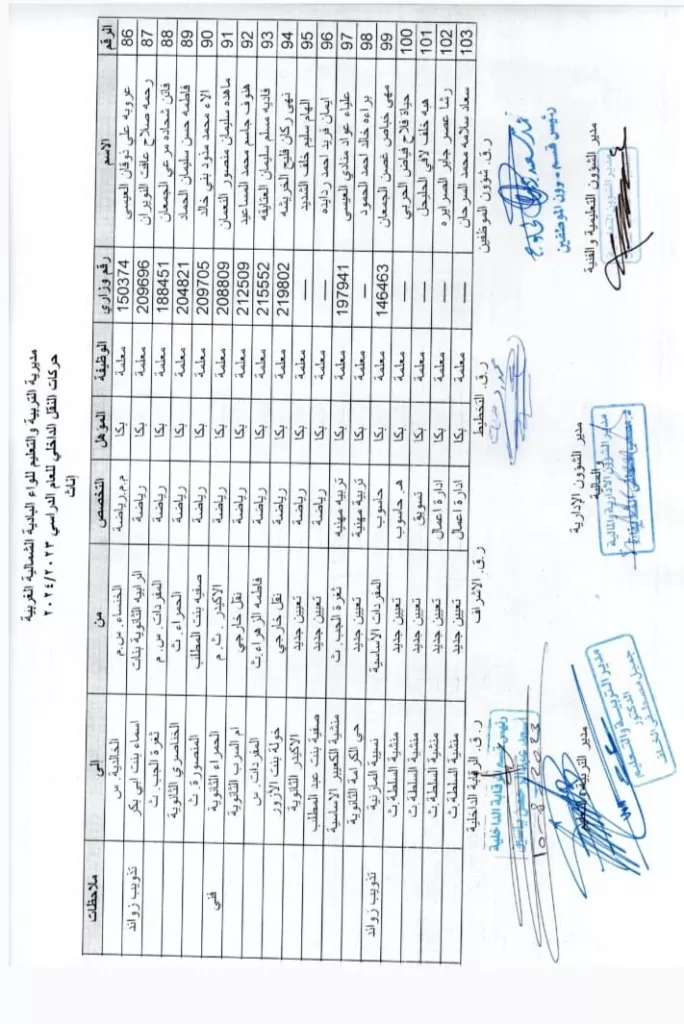 مديرية التربية والتعليم للواء البادية الشمالية الغربية
حركات النقل الداخلي للعام الدراسي ٢٠٢٤/٢٠٢٣
إناث
الرقم الاسم رقم وزاري الوظيفة المؤهل التخصص من الى ملاحظات
86 عروبه علي نوفان العيسى 150374 معلمة بكا م.م.رياضة الخنساء.س.م الخالدية.س
87 رحمه صلاح عافت النويران 209696 معلمة بكا رياضة الرابيه الثانوية بنات اسماء بنت ابي بكر تذويب زوائد
88 فاتن شحاده مرعي الجمعان 188451 معلمة بكا رياضة المفردات.س.م ثغرة الجب.ث
89 فاطمه حسن سليمان الحماد 204821 معلمة بكا رياضة الحمراء.ث الخناصري الثانوية
90 الاء محمد مشود بني خالد 209705 معلمة بكا رياضة صفيه بنت المطلب المنصورة.ث
91 ماهده سليمان منصور النعمان 208809 معلمة بكا رياضة الاكيدر.ث.م الحمراء الثانوية فني
92 هنوف جاسم محمد المساعيد 212509 معلمة بكا رياضة نقل خارجي ام السرب الثانوية
93 فاديه مسلم سليمان العنايقه 215552 معلمة بكا رياضة فاطمه الزهراء.ث المفردات.س
94 نهى ركان فليح الخريشه 219802 معلمة بكا رياضة نقل خارجي خولة بنت الأزور
95 الهام سليم خلف الشديد — معلمة بكا رياضة تعيين جديد الاكيدر الثانوية
96 ايمان فريد احمد ردايده — معلمة بكا رياضة تعيين جديد صفية بنت عبد المطلب
97 علياء عواد منادي العيسى 197941 معلمة بكا تربيه مهنيه ثغرة الجب.ث منشية الكعيبر الاساسية
98 براءه خالد احمد الحمود — معلمة بكا تربية مهنية تعيين جديد حي الكرامة الثانوية
99 مهى حياص غصن الجمعان 146463 معلمة بكا حاسوب المفردات الاساسية نسيبة المازنية تذويب زوائد
100 حياة فلاح فياض الحربي — معلمة بكا هـ حاسوب تعيين جديد منشية السلطة.ث
101 هبه خلف لافي الحليحل — معلمة بكا تسويق تعيين جديد منشية السلطة.ث
102 رشا عصر جابر الصرايره — معلمة بكا ادارة اعمال تعيين جديد منشية السلطة.ث
103 سعاد سلامه محمد السرحان — معلمة بكا ادارة اعمال تعيين جديد منشية السلطة.ث
ر.ق. شؤون الموظفين ر.ق. التخطيط ر.ق. الاشراف ر.ق. الرقابة الداخلية
رئيس قسم شؤون الموظفين
رئيس قسم الرقابة الداخلية
10-8-2023
مدير الشؤون التعليمية والفنية مدير الشؤون الإدارية والمالية مدير التربية والتعليم
مدير الشؤون الادارية والمالية
مدير التربية والتعليم
الدكتور